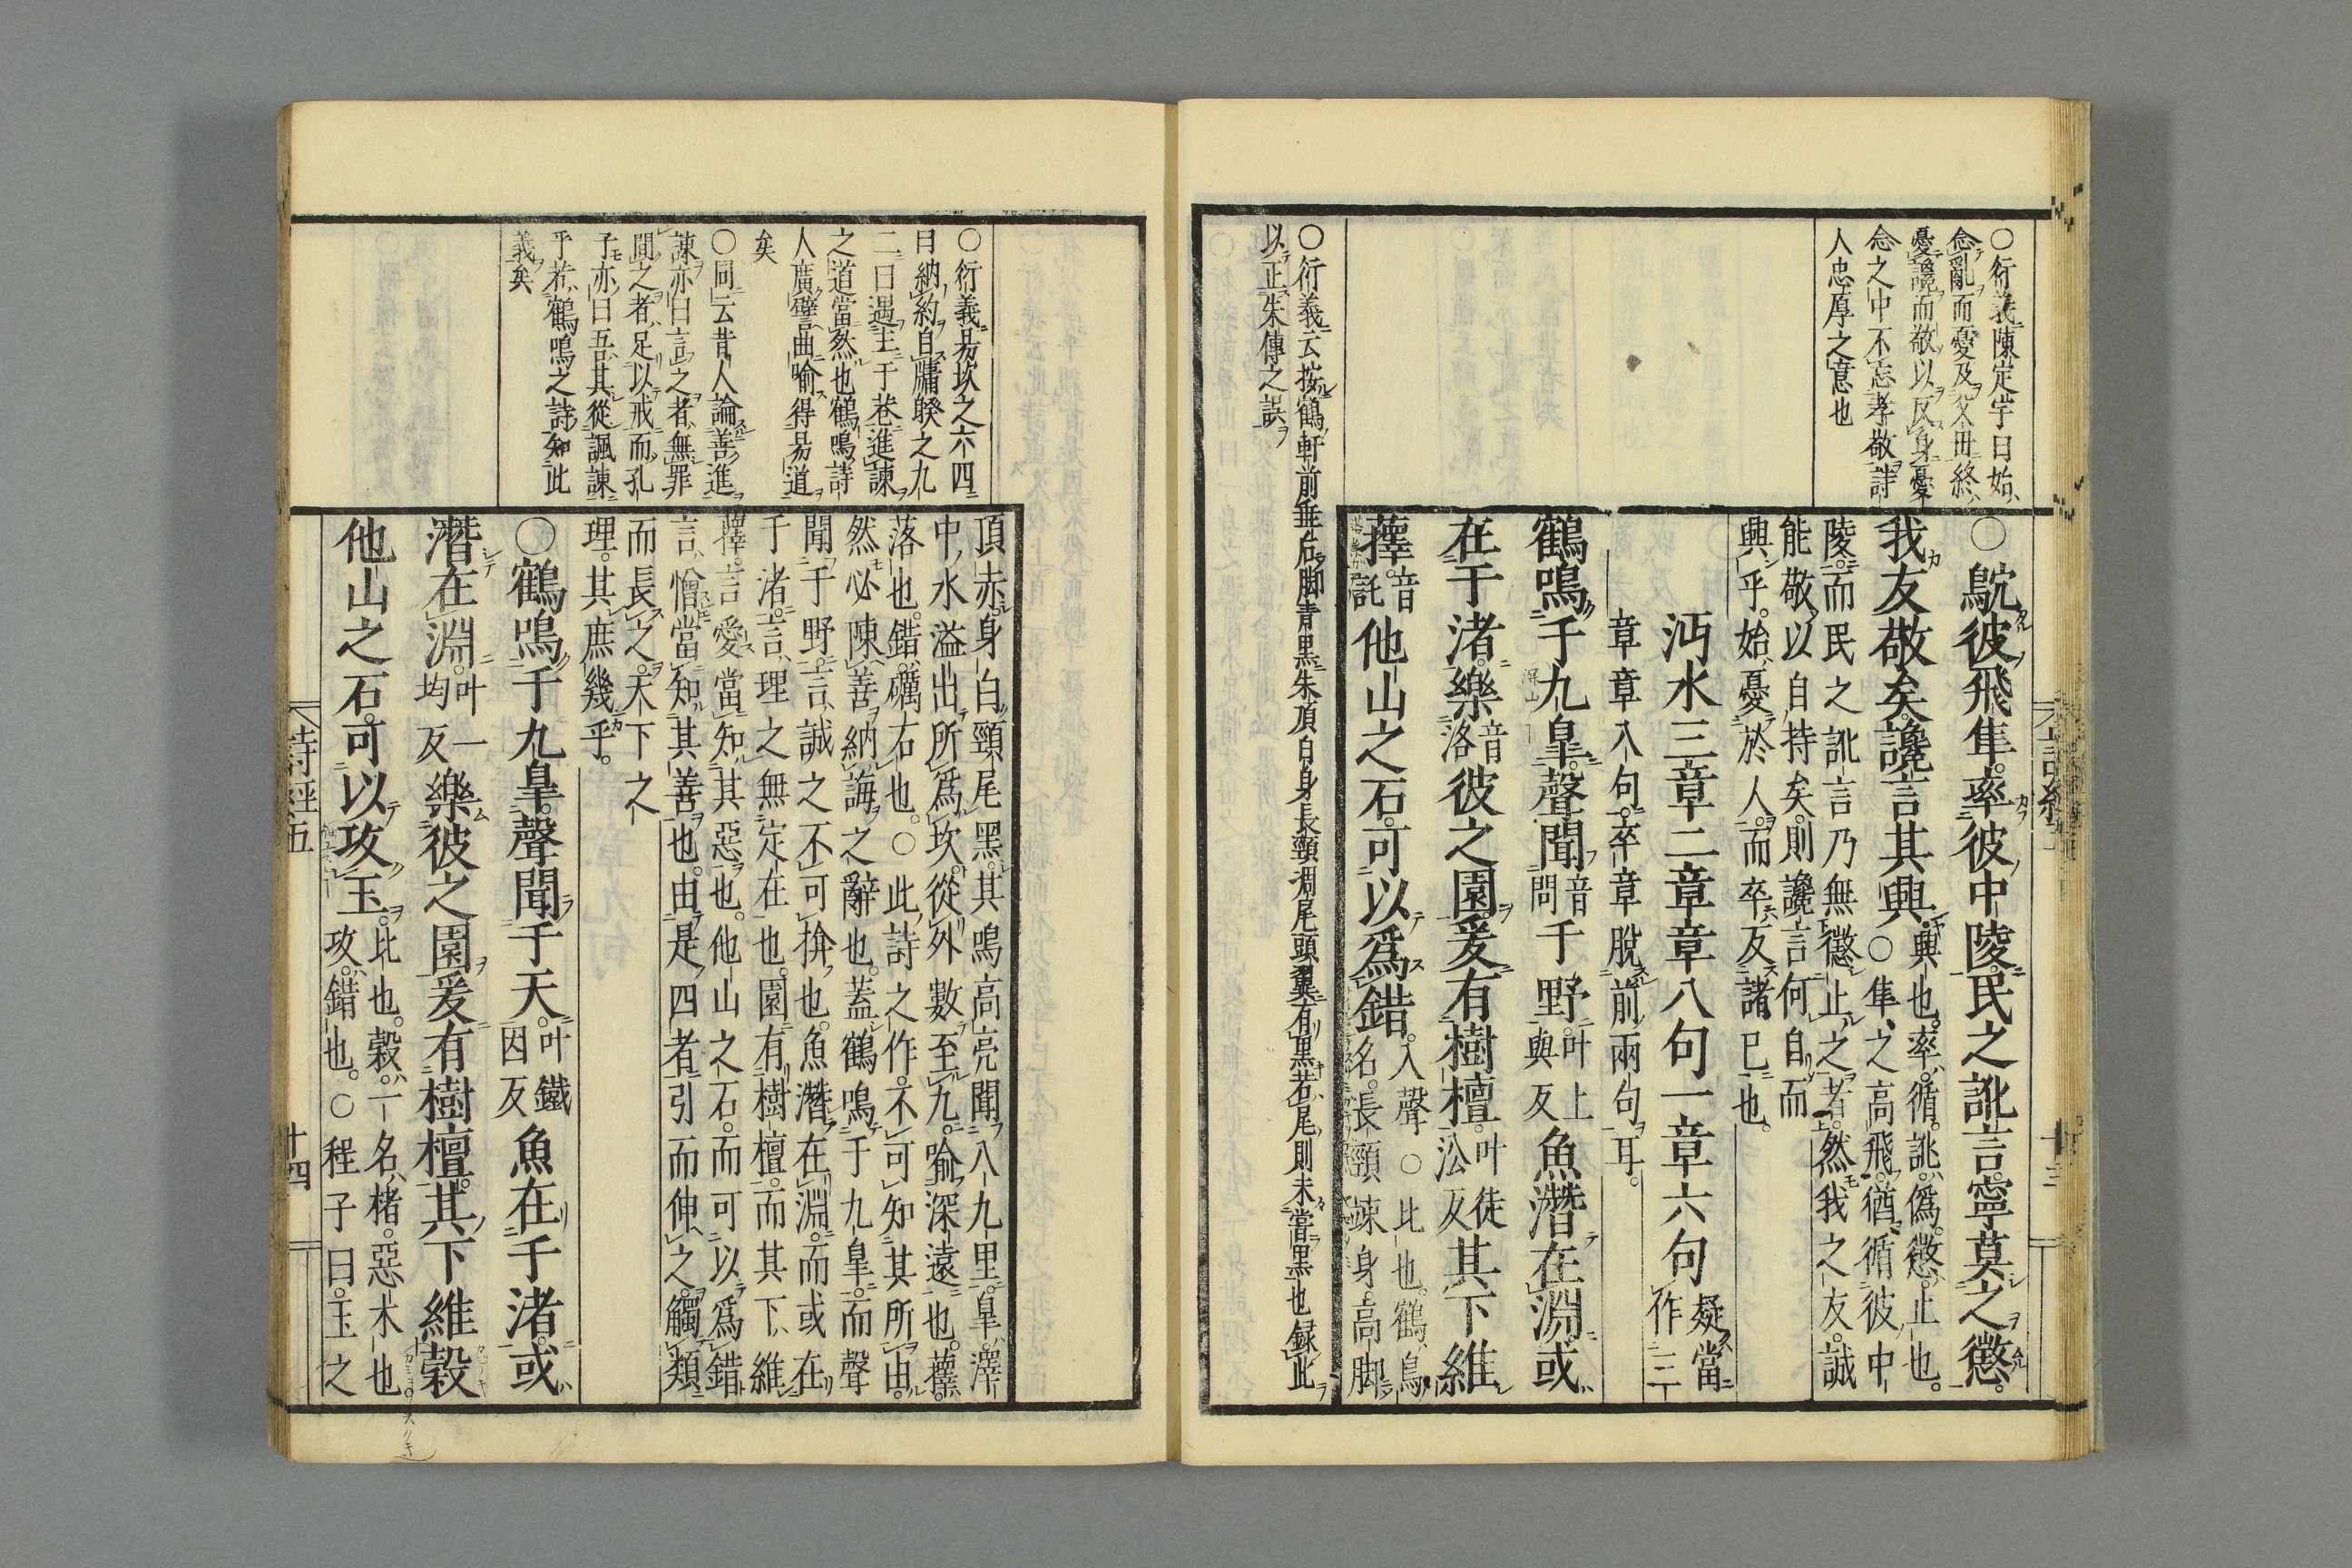 ○衍義陳定宇曰始
念亂而憂及父毋終
憂讒而敬以反身憂
念之中不忘孝敬詩
人忠厚之意也
○鴥彼飛隼率彼中陵民之訛言寧莫之懲
我友敬矣讒言其興
興也率循訛僞懲止也
○隼之高飛猶循彼中
陵而民之訛言乃無懲止之者然我之友誠
能敬以自持矣則讒言何自而
興乎始憂於人而卒反諸已也
沔水三章二章章八句一章六句
疑當
作三
章章八句卒章脫前兩句耳
鶴鳴于九皐聲聞
音
問
于野
叶上
與反
魚潛在淵或
在于渚樂
音
洛
彼之園爰有樹檀
叶徒
沿反
其下維
蘀
音
託
他山之石可以爲錯
入聲○比也鶴鳥
名長頸竦身高脚
○衍義云按鶴軒前垂后脚青黑朱頂白身長頸凋尾頭翼有黑若尾則未嘗黑也録此
以正朱傳之誤
○衍義易坎之六四
曰納約自牖睽之九
二曰遇主于巷進諫
之道當然也鶴鳴詩
人廣譬曲喻得易道
矣
○同云昔人論善進
諫亦曰言之者無罪
聞之者足以戒而孔
子亦曰吾其從諷諫
乎若鶴鳴之詩知此
義矣
頂赤身白頸尾黑其鳴高亮聞八九里皐澤
中水溢出所爲坎從外數至九喻深遠也蘀
落也錯礪石也○此詩之作不可知其所由
然必陳善納誨之辭也蓋鶴鳴于九皐而聲
聞于野言誠之不可揜也魚潛在淵而或在
于渚言理之無定在也園有樹檀而其下維
蘀言愛當知其惡也他山之石而可以爲錯
言憎當知其善也由是四者引而伸之觸類
而長之天下之
理其庶幾乎
○鶴鳴于九皐聲聞于天
叶鐵
因反
魚在于渚或
潛在淵
叶一
均反
樂彼之園爰有樹檀其下維榖
他山之石可以攻玉
比也榖一名楮惡木也
攻錯也○程子曰玉之
詩經五
十四